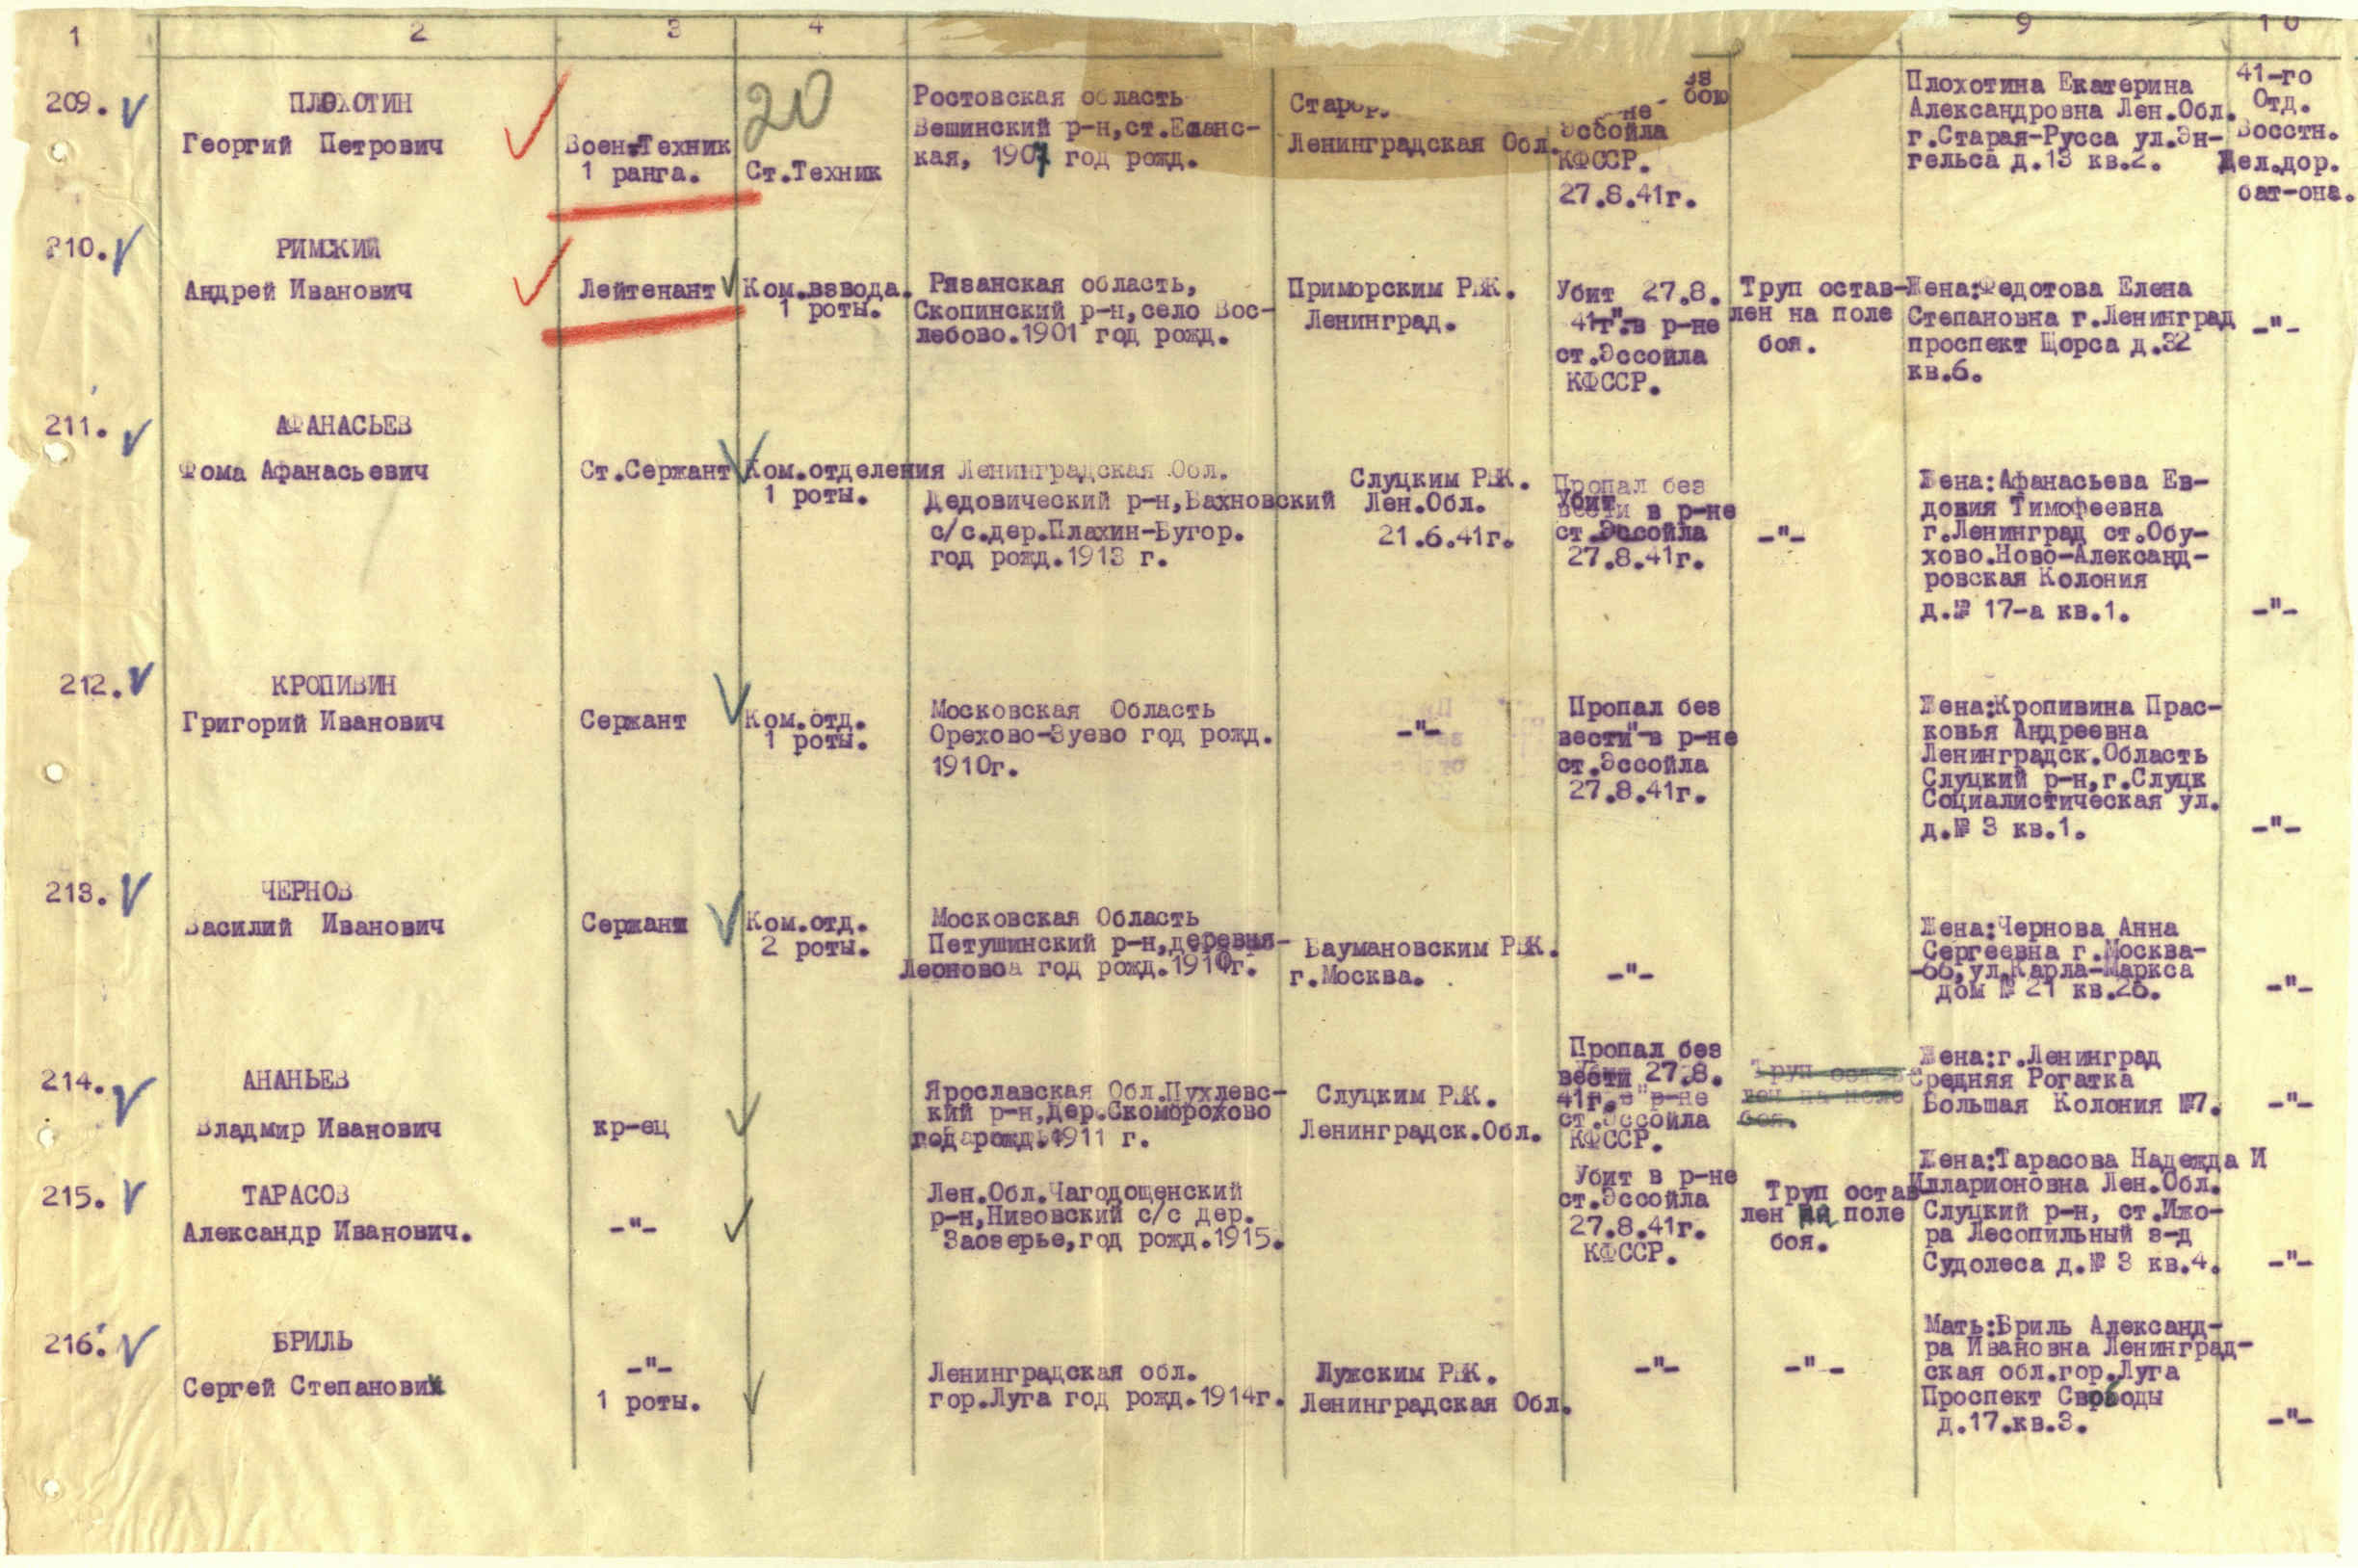 1 2 3 4 9 10
209.
ПЛОХОТИН
Георгий Петрович
Воен.Техник
1 ранга.
20
Ст.Техник
Ростовская область
Вешинский р-н,ст.Еланс-
кая, 1907 год рожд.
Ленинградская Обл.
бою
не
Эссойла
КФССР.
27.8.41г.
Плохотина Екатерина
Александровна Лен.Обл.
г.Старая-Русса ул.Эн-
гельса д.13 кв.2.
41-го
Отд.
Восстн.
Жел.дор.
бат-она.
210.
РИМСКИЙ
Андрей Иванович
Лейтенант
Ком.взвода.
1 роты.
Рязанская область,
Скопинский р-н,село Вос-
лебово.1901 год рожд.
Приморским РВК.
Ленинград.
Убит 27.8.
41г.в р-не
ст.Эссойла
КФССР.
Труп остав-
лен на поле
боя.
Жена:Федотова Елена
Степановна г.Ленинград
проспект Щорса д.32
кв.6.
-"-
211.
АФАНАСЬЕВ
Фома Афанасьевич
Ст.Сержант
Ком.отделения
1 роты.
Ленинградская Обл.
Дедовический р-н,Вахновский
с/с.дер.Плахин-Бугор.
год рожд.1913 г.
Слуцким РВК.
Лен.Обл.
21.6.41г.
Пропал без
вести в р-не
ст.Эссойла
27.8.41г.
-"-
Жена:Афанасьева Ев-
докия Тимофеевна
г.Ленинград ст.Обу-
хово.Ново-Александ-
ровская Колония
д.№ 17-а кв.1.
-"-
212.
КРОПИВИН
Григорий Иванович
Сержант
Ком.отд.
1 роты.
Московская Область
Орехово-Зуево год рожд.
1910г.
-"-
Пропал без
вести в р-не
ст.Эссойла
27.8.41г.
Жена:Кропивина Прас-
ковья Андреевна
Ленинградск.Область
Слуцкий р-н,г.Слуцк
Социалистическая ул.
д.№ 3 кв.1.
-"-
213.
ЧЕРНОВ
Василий Иванович
Сержант
Ком.отд.
2 роты.
Московская Область
Петушинский р-н,деревня-
Леоново год рожд.1910г.
Баумановским РВК.
г.Москва.
-"-
Жена:Чернова Анна
Сергеевна г.Москва-
-66,ул.Карла-Маркса
дом № 21 кв.26.
-"-
214.
АНАНЬЕВ
Владмир Иванович
кр-ец
Ярославская Обл.Пухлевс-
кий р-н,дер.Скоморохово
год рожд.1911 г.
Слуцким РВК.
Ленинградск.Обл.
Пропал без
вести 27.8.
41г.в р-не
ст.Эссойла
КФССР.
Труп остав
лен на поле
боя.
Жена:г.Ленинград
Средняя Рогатка
Большая Колония №7.
-"-
215.
ТАРАСОВ
Александр Иванович.
-"-
Лен.Обл.Чагодощенский
р-н,Низовский с/с дер.
Заозерье,год рожд.1915.
Убит в р-не
ст.Эссойла
27.8.41г.
КФССР.
Труп остав-
лен на поле
боя.
Жена:Тарасова Надежда И
Илларионовна Лен.Обл.
Слуцкий р-н, ст.Ижо-
ра Лесопильный з-д
Судолеса д.№ 3 кв.4.
-"-
216.
БРИЛЬ
Сергей Степанович
-"-
1 роты.
Ленинградская обл.
гор.Луга год рожд.1914г.
Лужским РВК.
Ленинградская Обл.
-"-
-"-
Мать:Бриль Александ-
ра Ивановна Ленинград-
ская обл.гор.Луга
Проспект Свободы
д.17.кв.3.
-"-